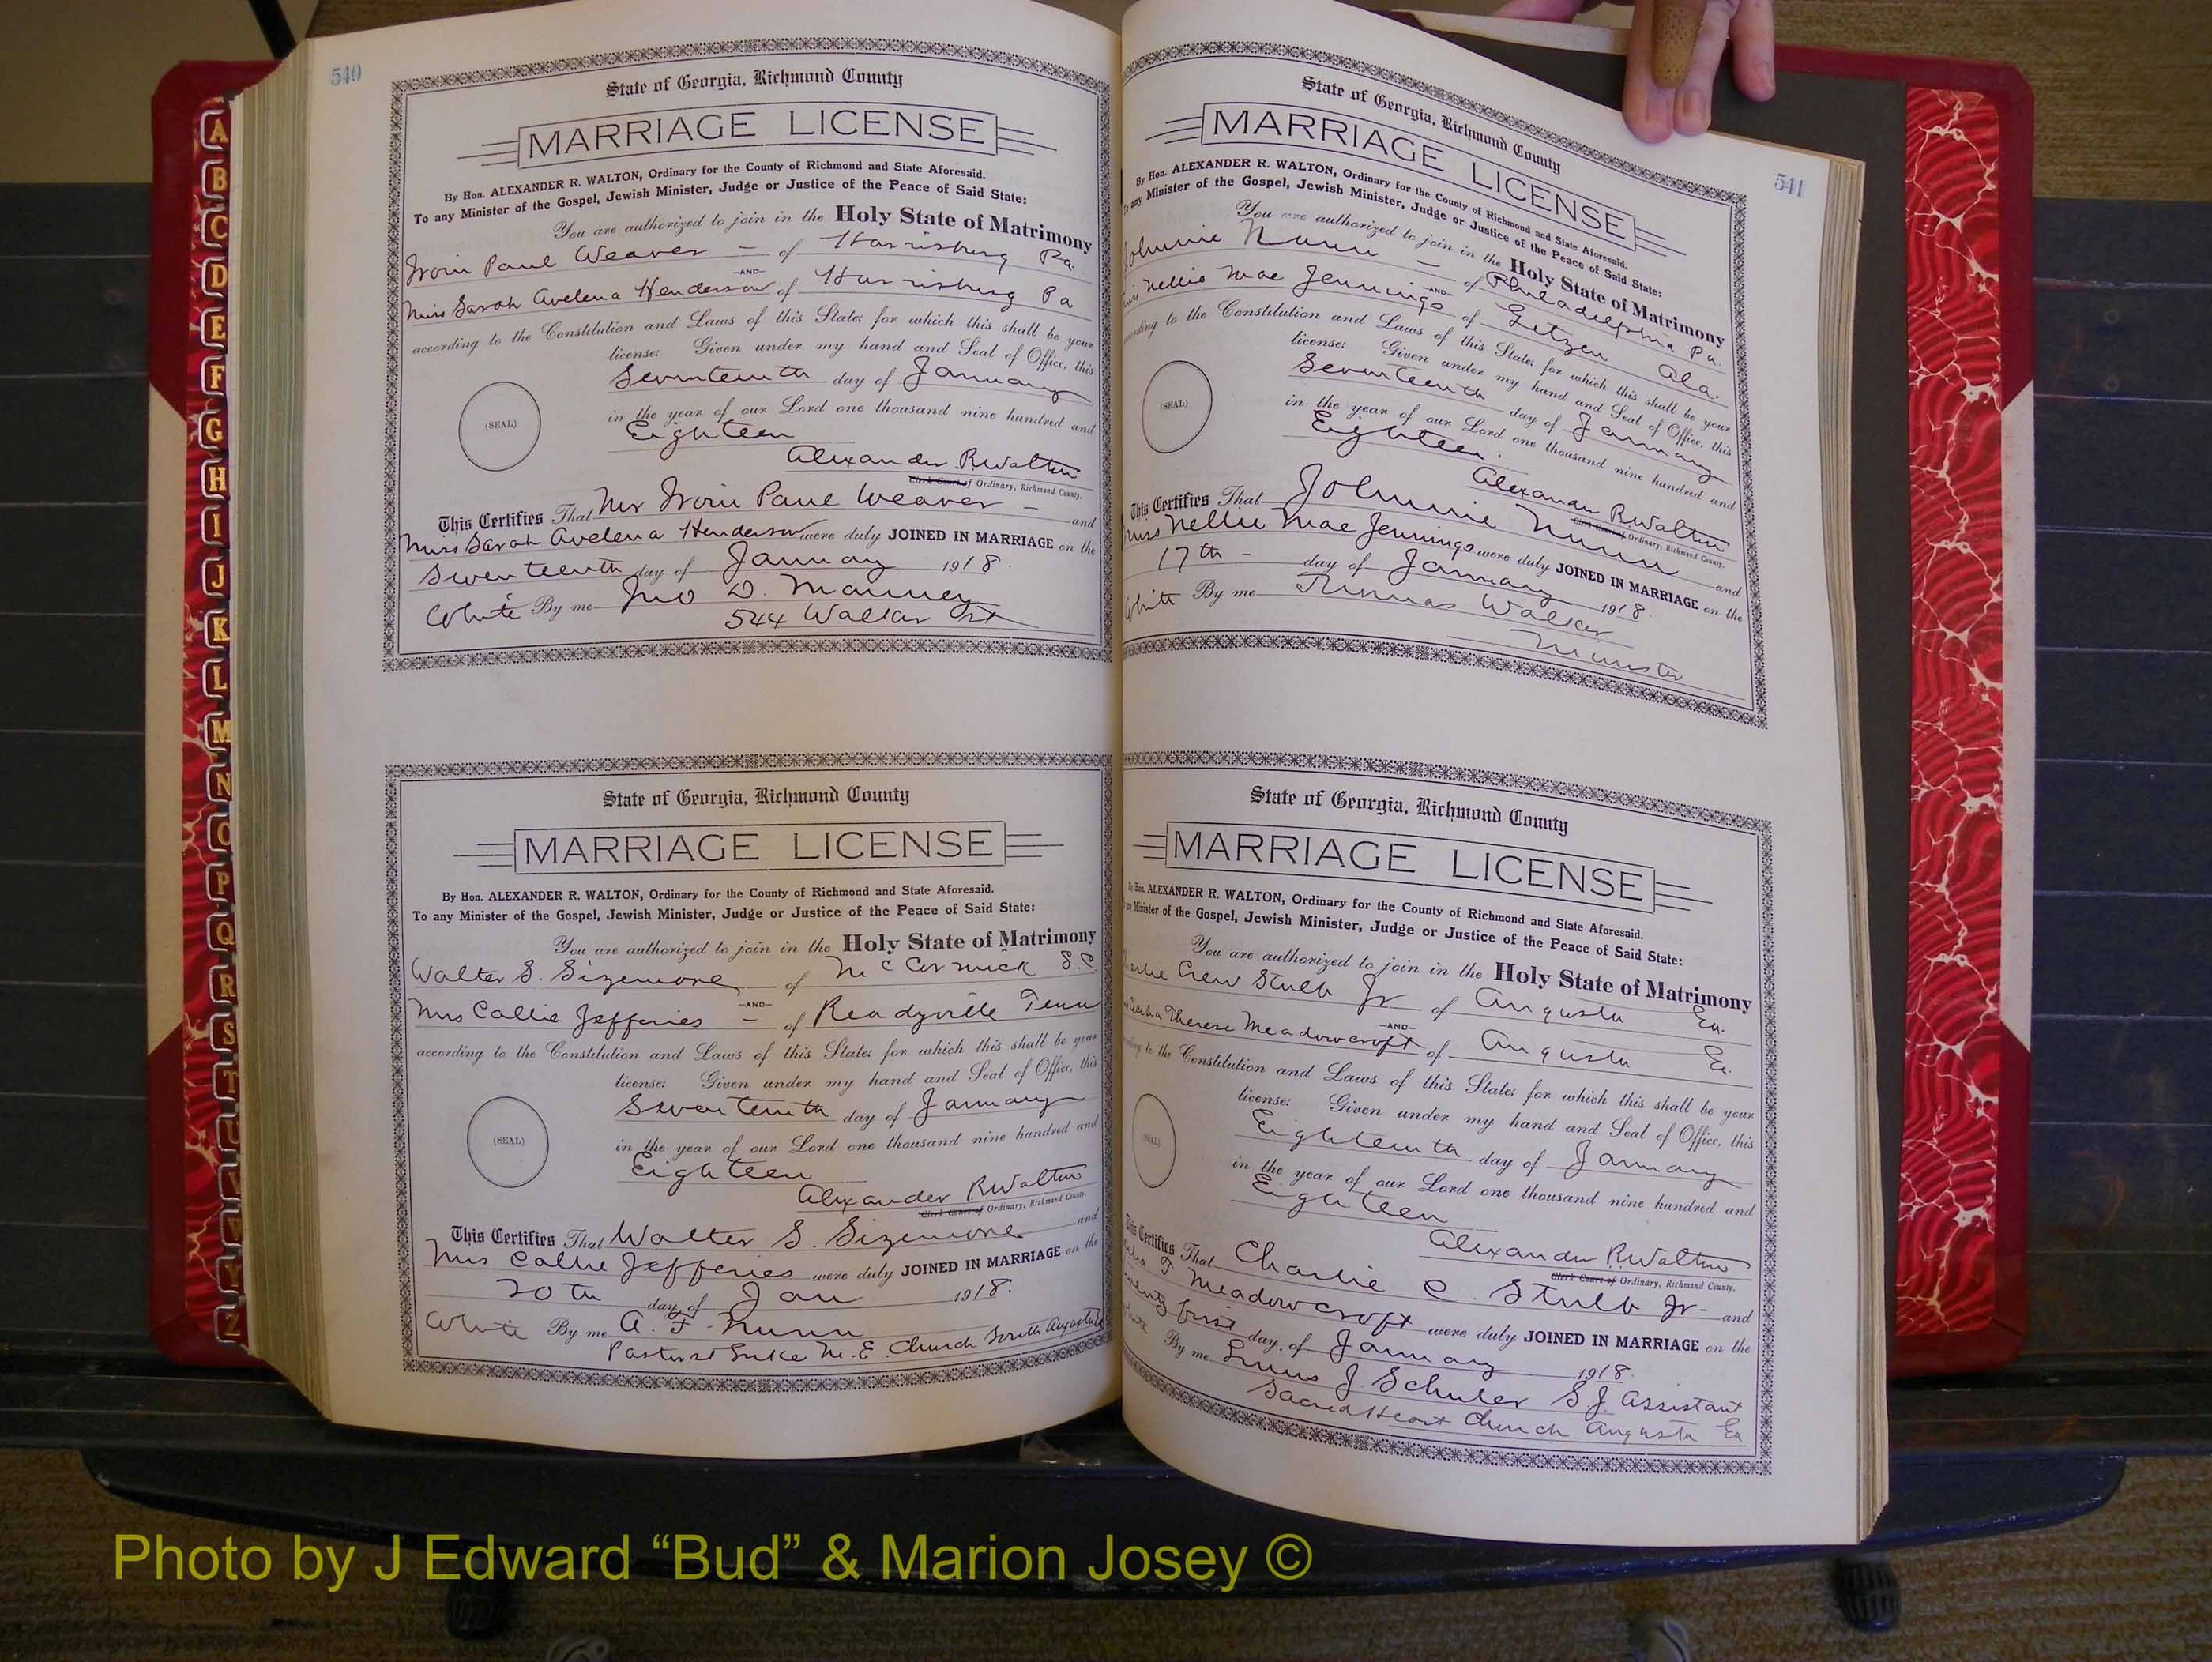 540
State of Georgia, Richmond County
MARRIAGE LICENSE
By Hon. ALEXANDER R. WALTON, Ordinary for the County of Richmond and State Aforesaid.
To any Minister of the Gospel, Jewish Minister, Judge or Justice of the Peace of Said State:
You are authorized to join in the Holy State of Matrimony
Paul Weaver — of Harrisburg Pa.
—AND—
Miss Sarah Avelena Henderson of Harrisburg Pa
according to the Constitution and Laws of this State; for which this shall be your
license: Given under my hand and Seal of Office, this
Seventeenth day of January
in the year of our Lord one thousand nine hundred and
(SEAL)
Eighteen
Alexander R Walton
Clerk Court of Ordinary, Richmond County.
This Certifies That Mr Paul Weaver — and
Miss Sarah Avelena Henderson were duly JOINED IN MARRIAGE on the
Seventeenth day of January 1918.
White By me Jno D. Manney
544 Walker St
State of Georgia, Richmond County
MARRIAGE LICENSE
By Hon. ALEXANDER R. WALTON, Ordinary for the County of Richmond and State Aforesaid.
To any Minister of the Gospel, Jewish Minister, Judge or Justice of the Peace of Said State:
You are authorized to join in the Holy State of Matrimony
Walter S. Sizemore of McCormick S.C.
—AND—
Mrs Callie Jefferies — of Readyville Tenn
according to the Constitution and Laws of this State; for which this shall be your
license: Given under my hand and Seal of Office, this
Seventeenth day of January
in the year of our Lord one thousand nine hundred and
(SEAL)
Eighteen
Alexander R Walton
Clerk Court of Ordinary, Richmond County.
This Certifies That Walter S. Sizemore and
Mrs Callie Jefferies were duly JOINED IN MARRIAGE on the
20th day of Jan 1918.
White By me A. F. Nunn
Pastor St Luke M. E. Church South Augusta Ga
541
State of Georgia, Richmond County
MARRIAGE LICENSE
By Hon. ALEXANDER R. WALTON, Ordinary for the County of Richmond and State Aforesaid.
To any Minister of the Gospel, Jewish Minister, Judge or Justice of the Peace of Said State:
You are authorized to join in the Holy State of Matrimony
Johnnie Nunn — of Philadelphia Pa.
—AND—
Nellie Mae Jennings of Ala.
according to the Constitution and Laws of this State; for which this shall be your
license: Given under my hand and Seal of Office, this
Seventeenth day of January
in the year of our Lord one thousand nine hundred and
(SEAL)
Eighteen.
Alexander R Walton
Clerk Court of Ordinary, Richmond County.
This Certifies That Johnnie Nunn and
Miss Nellie Mae Jennings were duly JOINED IN MARRIAGE on the
17th — day of January 1918.
White By me Thomas Walker
Minister
State of Georgia, Richmond County
MARRIAGE LICENSE
By Hon. ALEXANDER R. WALTON, Ordinary for the County of Richmond and State Aforesaid.
To any Minister of the Gospel, Jewish Minister, Judge or Justice of the Peace of Said State:
You are authorized to join in the Holy State of Matrimony
Crew Stulb Jr of Augusta Ga.
—AND—
Therese Meadowcroft of Augusta Ga.
to the Constitution and Laws of this State; for which this shall be your
license: Given under my hand and Seal of Office, this
Eighteenth day of January
in the year of our Lord one thousand nine hundred and
(SEAL)
Eighteen
Alexander R Walton
Clerk Court of Ordinary, Richmond County.
This Certifies That Charlie C. Stulb Jr- and
T Meadowcroft were duly JOINED IN MARRIAGE on the
first day of January 1918.
By me J. Schuler S J. Assistant
Sacred Heart Church Augusta Ga
A
B
C
D
E
F
G
H
I
J
K
L
M
N
O
P
Q
R
S
T
U
V
W
Y
Z
Photo by J Edward “Bud” & Marion Josey ©